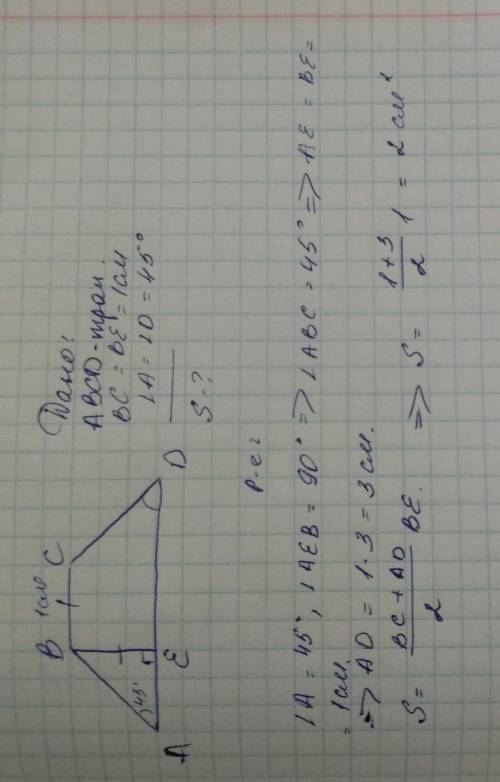 Дано:
ABCD - трап.
BC = BE = 1 см
∠A = ∠D = 45°
S - ?
B 1 см C
45°
A E D
Р-е:
∠A = 45°, ∠AEB = 90° => ∠ABC = 45° => AE = BE =
= 1 см.
=> AD = 1 · 3 = 3 см.
S = \frac{BC + AD}{2} BE. => S = \frac{1+3}{2} 1 = 2 см²